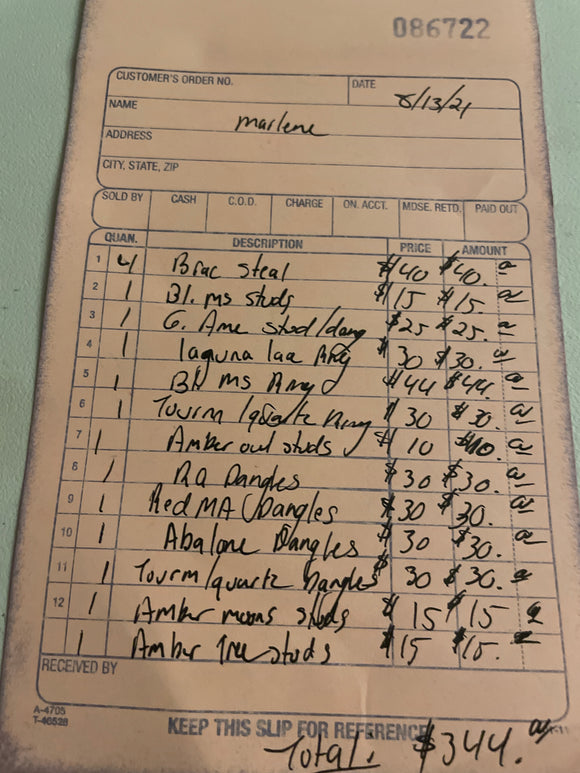 086722
CUSTOMER'S ORDER NO. DATE 8/13/21
NAME Marlene
ADDRESS
CITY, STATE, ZIP
SOLD BY CASH C.O.D. CHARGE ON. ACCT. MDSE. RETD. PAID OUT
QUAN. DESCRIPTION PRICE AMOUNT
1 4 Brac steal $40 $40.
2 1 Bl. ms studs $15 $15.
3 1 G. Ame stud/dang $25 $25.
4 1 laguna laa $30 $30.
5 1 ms $44 $44.
6 1 Tourm/quartz $30 $30.
7 1 Amber owl studs $10 $10.
8 1 RA Dangles $30 $30.
9 1 Red MA Dangles $30 $30.
10 1 Abalone Dangles $30 $30.
11 1 Tourm/quartz Dangles $30 $30.
12 1 Amber moons studs $15 $15
1 Amber Tree studs $15 $15.
RECEIVED BY
A-4705
T-46528
KEEP THIS SLIP FOR REFERENCE
Total: $344.